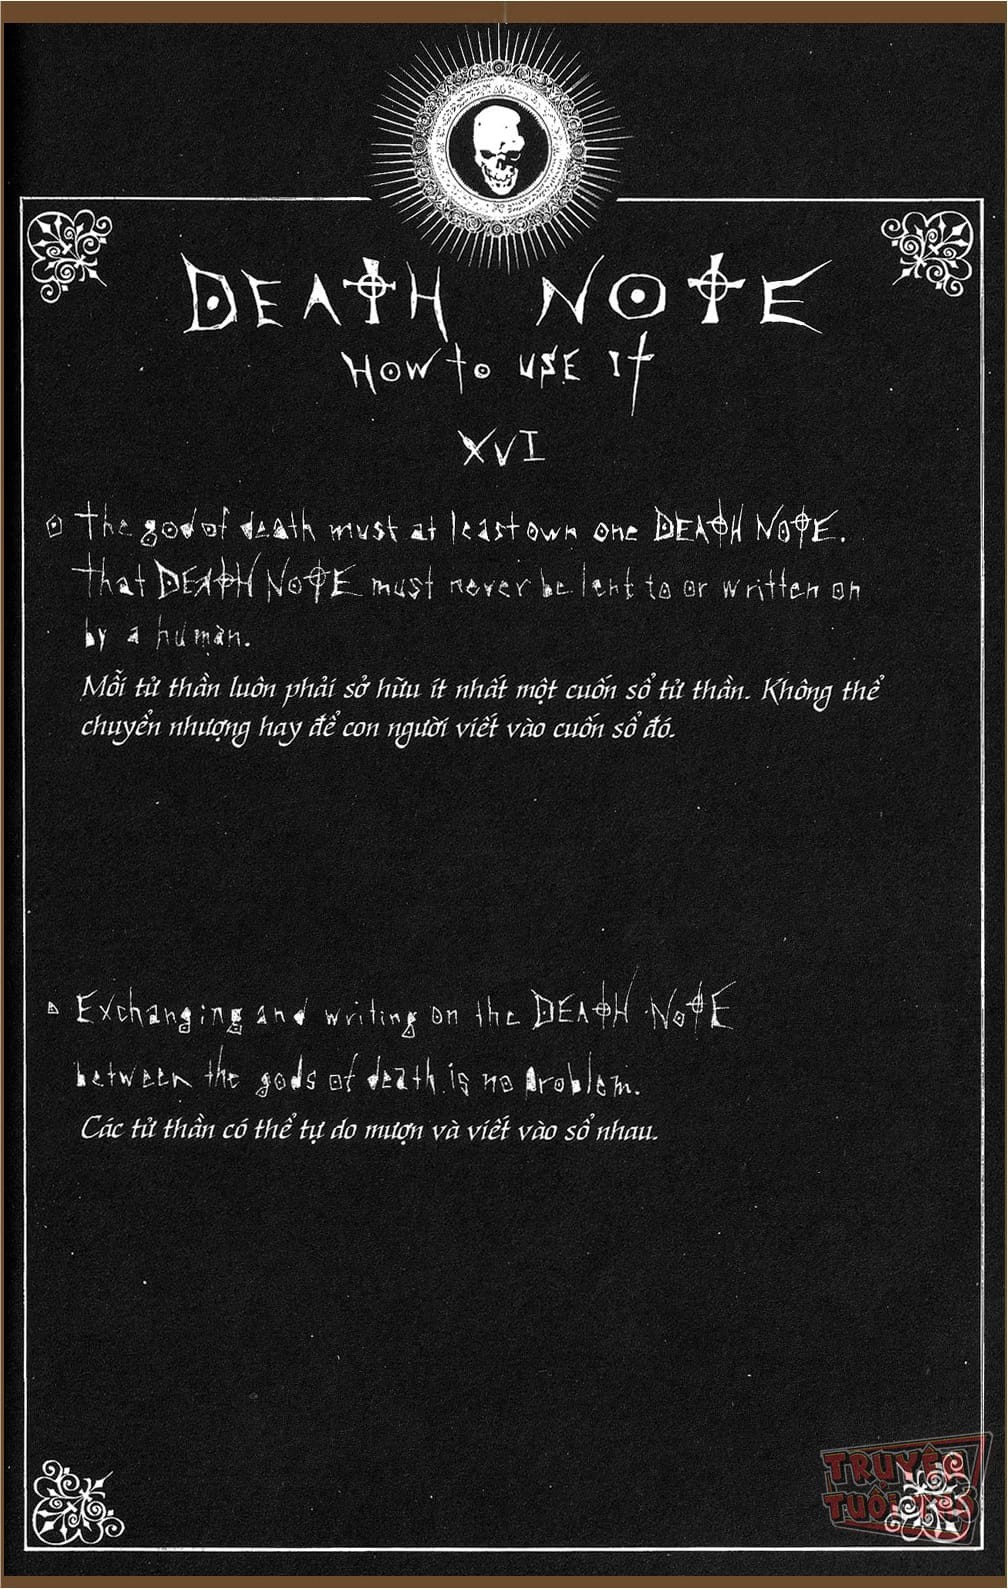 DEATH NOTE
HOW to USE It
XVI
The god of death must at least own one DEATH NOTE.
That DEATH NOTE must never be lent to or written on
by a human.
Mỗi tử thần luôn phải sở hữu ít nhất một cuốn sổ tử thần. Không thể
chuyển nhượng hay để con người viết vào cuốn sổ đó.
Exchanging and writing on the DEATH NOTE
between the gods of death is no problem.
Các tử thần có thể tự do mượn và viết vào sổ nhau.
TRUYỆN
TUỔI